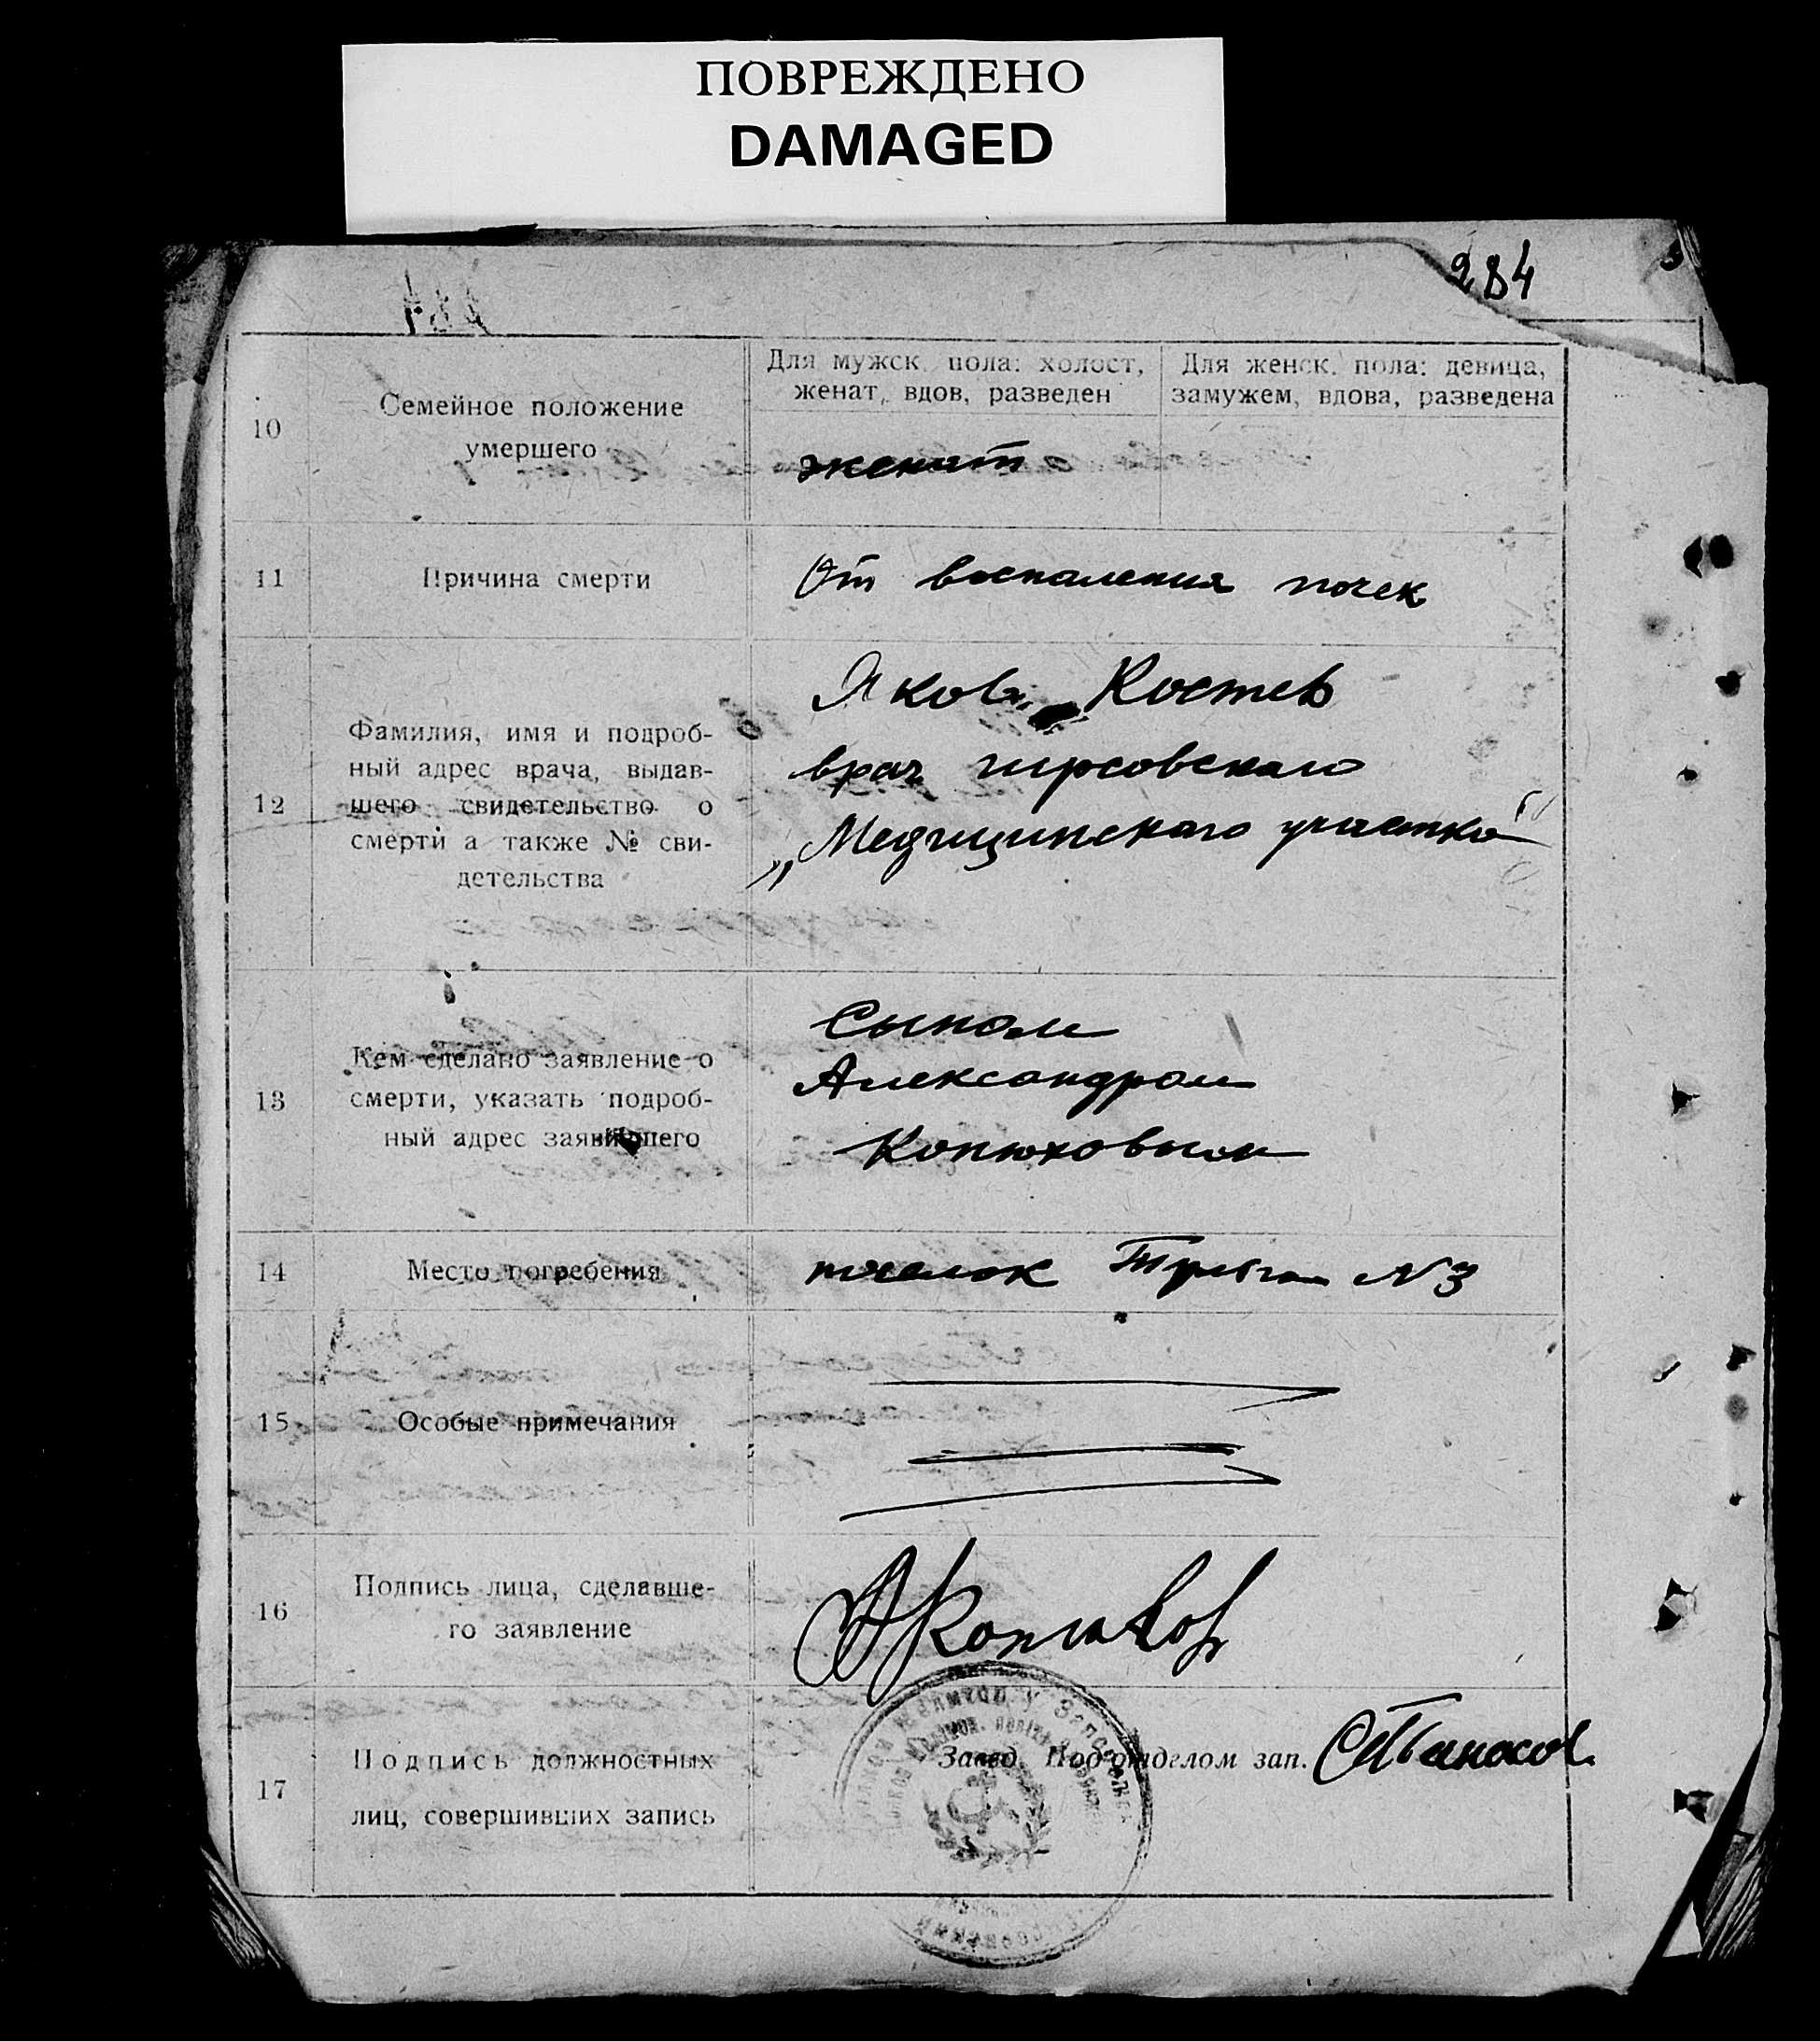 ПОВРЕЖДЕНО
DAMAGED
284
10
Семейное положение
умершего
Для мужск. пола: холост,
женат, вдов, разведен
Для женск. пола: девица,
замужем, вдова, разведена
женат
11
Причина смерти
От воспаления почек
12
Фамилия, имя и подроб-
ный адрес врача, выдав-
шего свидетельство о
смерти а также № сви-
детельства
Яков Костев
врач гирсовскаго
„Медицинскаго участка“
13
Кем сделано заявление о
смерти, указать подроб-
ный адрес заявившего
Сыном
Александром
Конюховым
14
Место погребения
поселок №3
15
Особые примечания
16
Подпись лица, сделавше-
го заявление
17
Подпись должностных
лиц, совершивших запись
Завед. Подотделом зап.